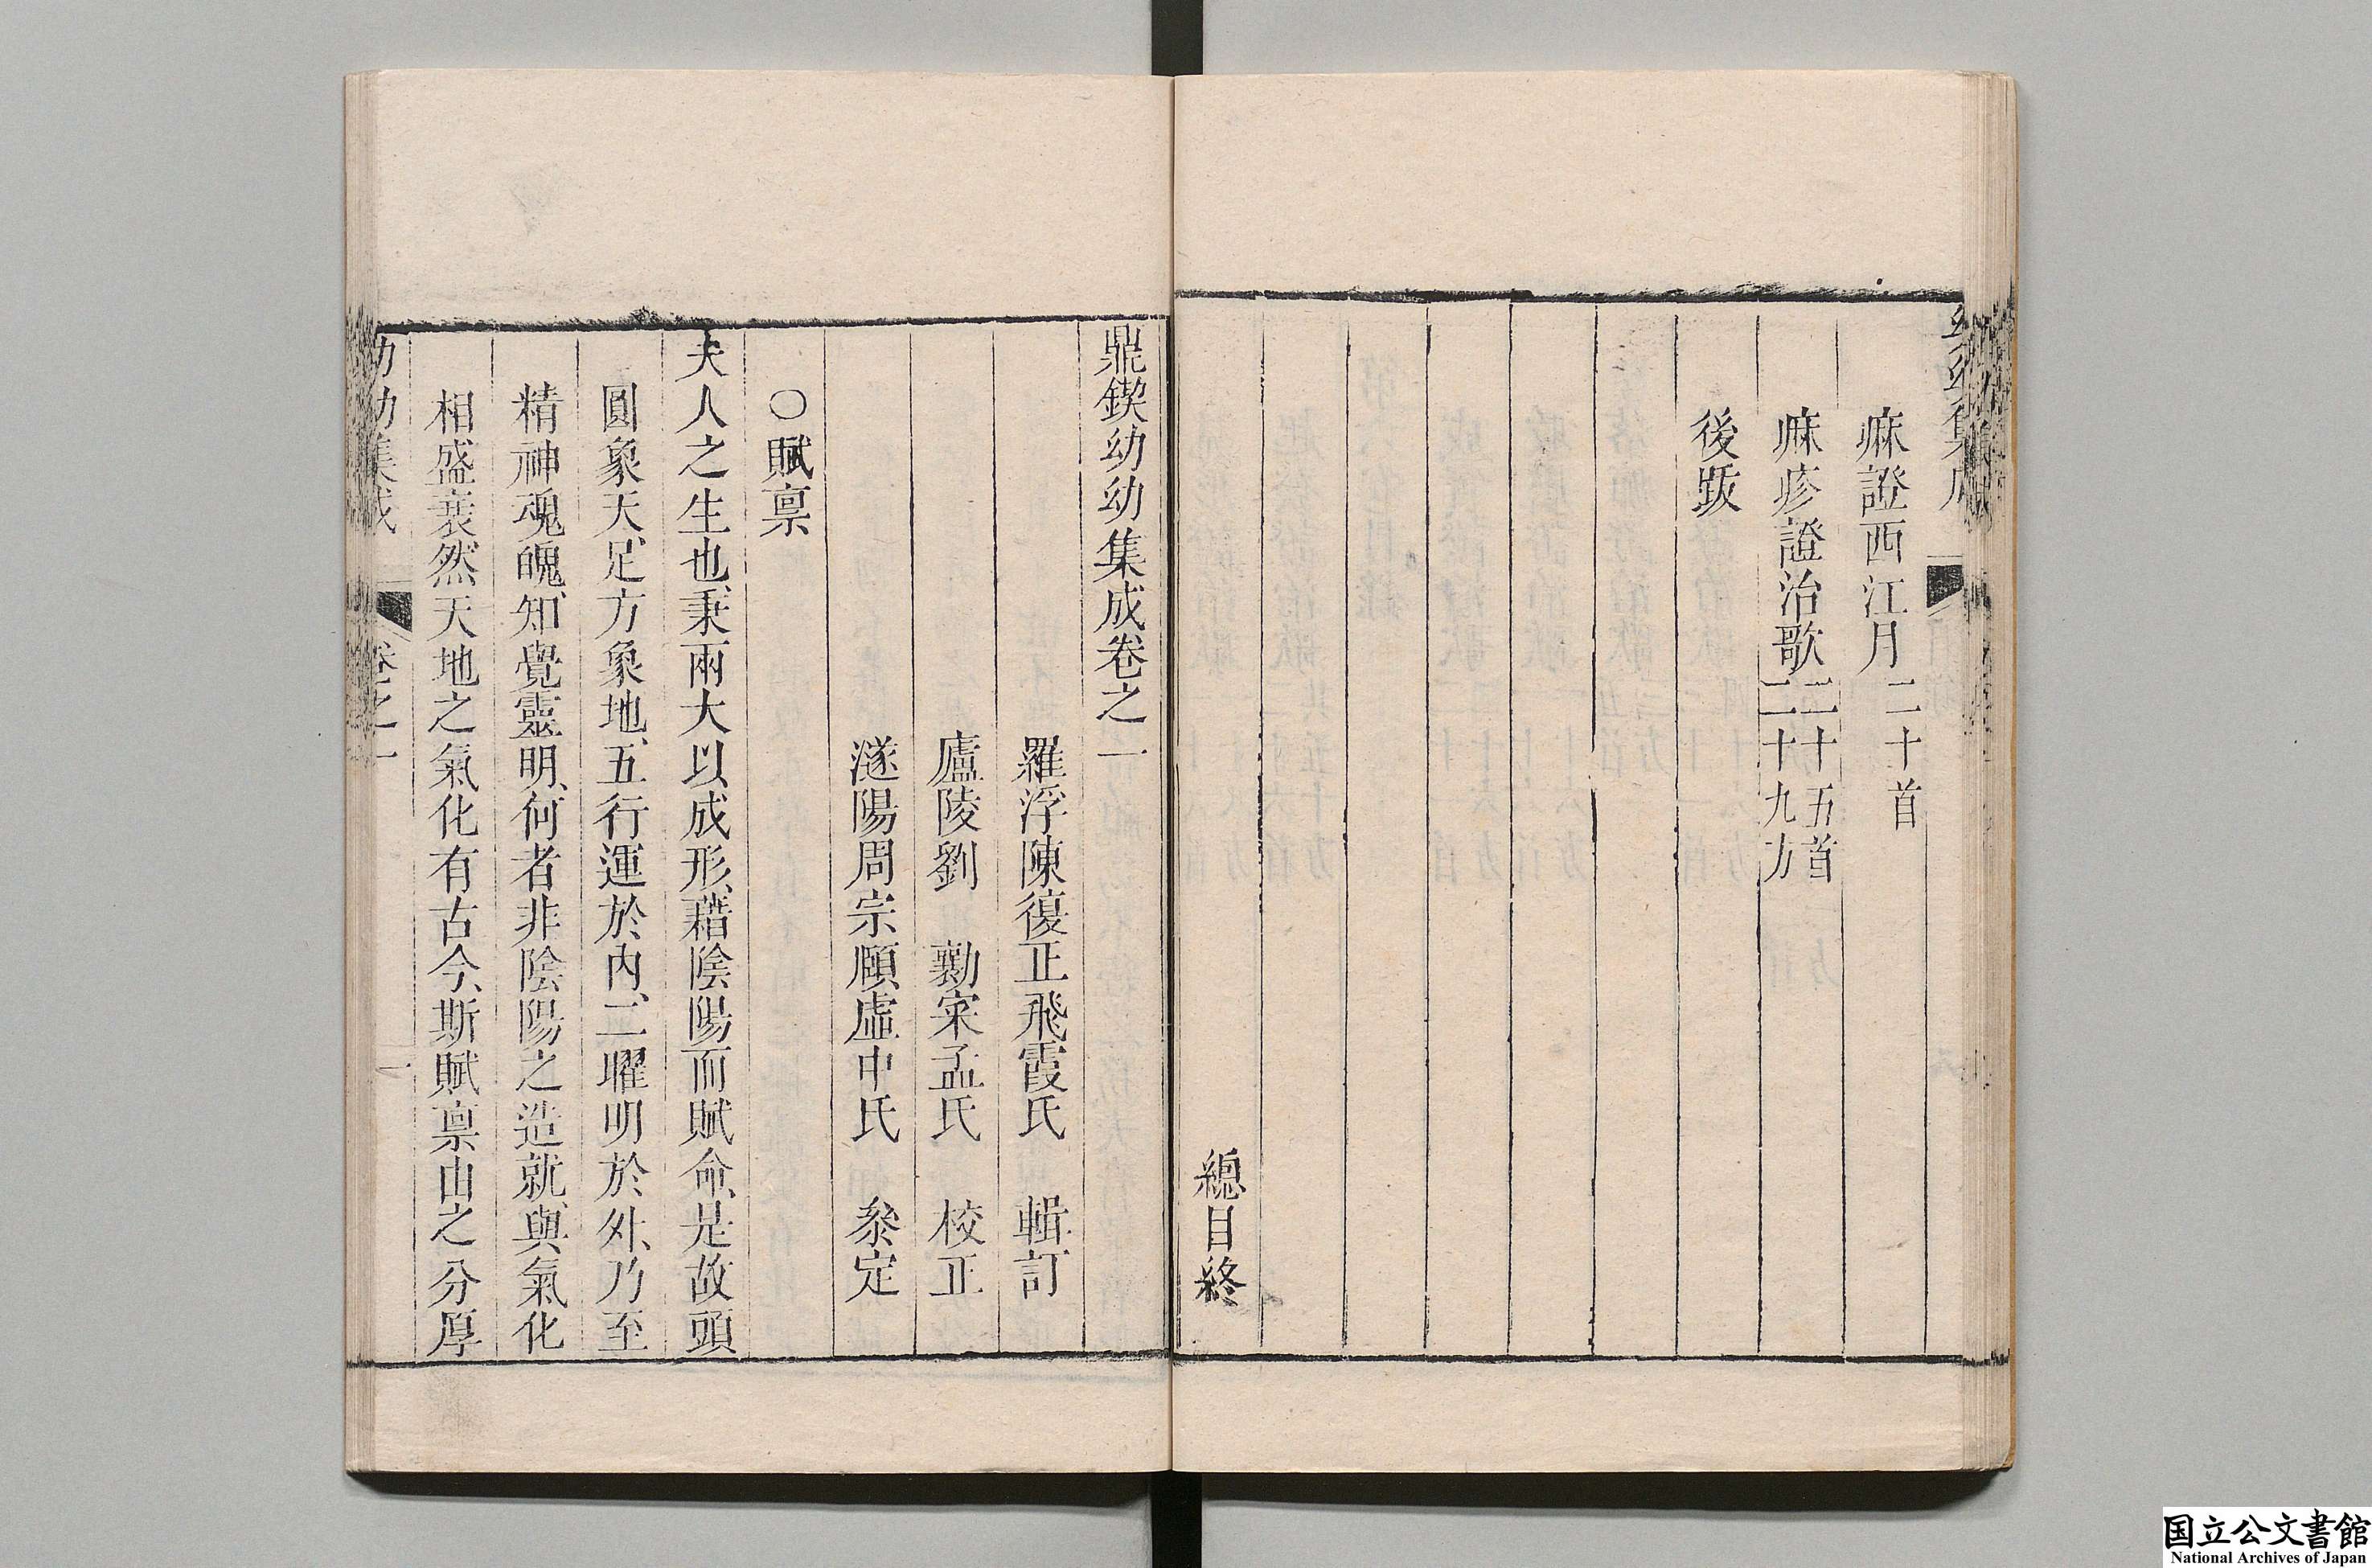 麻證西江月二十首
麻疹證治歌二十五首二十九方
後跋
總目終
鼎鍥幼幼集成卷之一
羅浮陳復正飛霞氏 輯訂
廬陵劉 勷宷孟氏 校正
遂陽周宗頤虛中氏 叅定
○賦禀
夫人之生也、秉兩大以成形、藉陰陽而賦命、是故頭
圓象天、足方象地、五行運於內、二曜明於外、乃至
精神魂魄、知覺靈明、何者非陰陽之造就、與氣化
相盛衰、然天地之氣化有古今、斯賦禀由之分厚
幼幼集成 卷之一 一
国立公文書館
National Archives of Japan